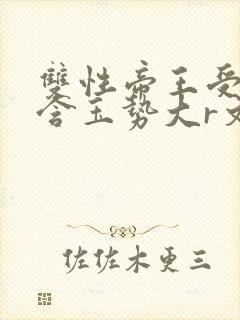 雙性帝王受
含玉勢大r文
佐佐木更三